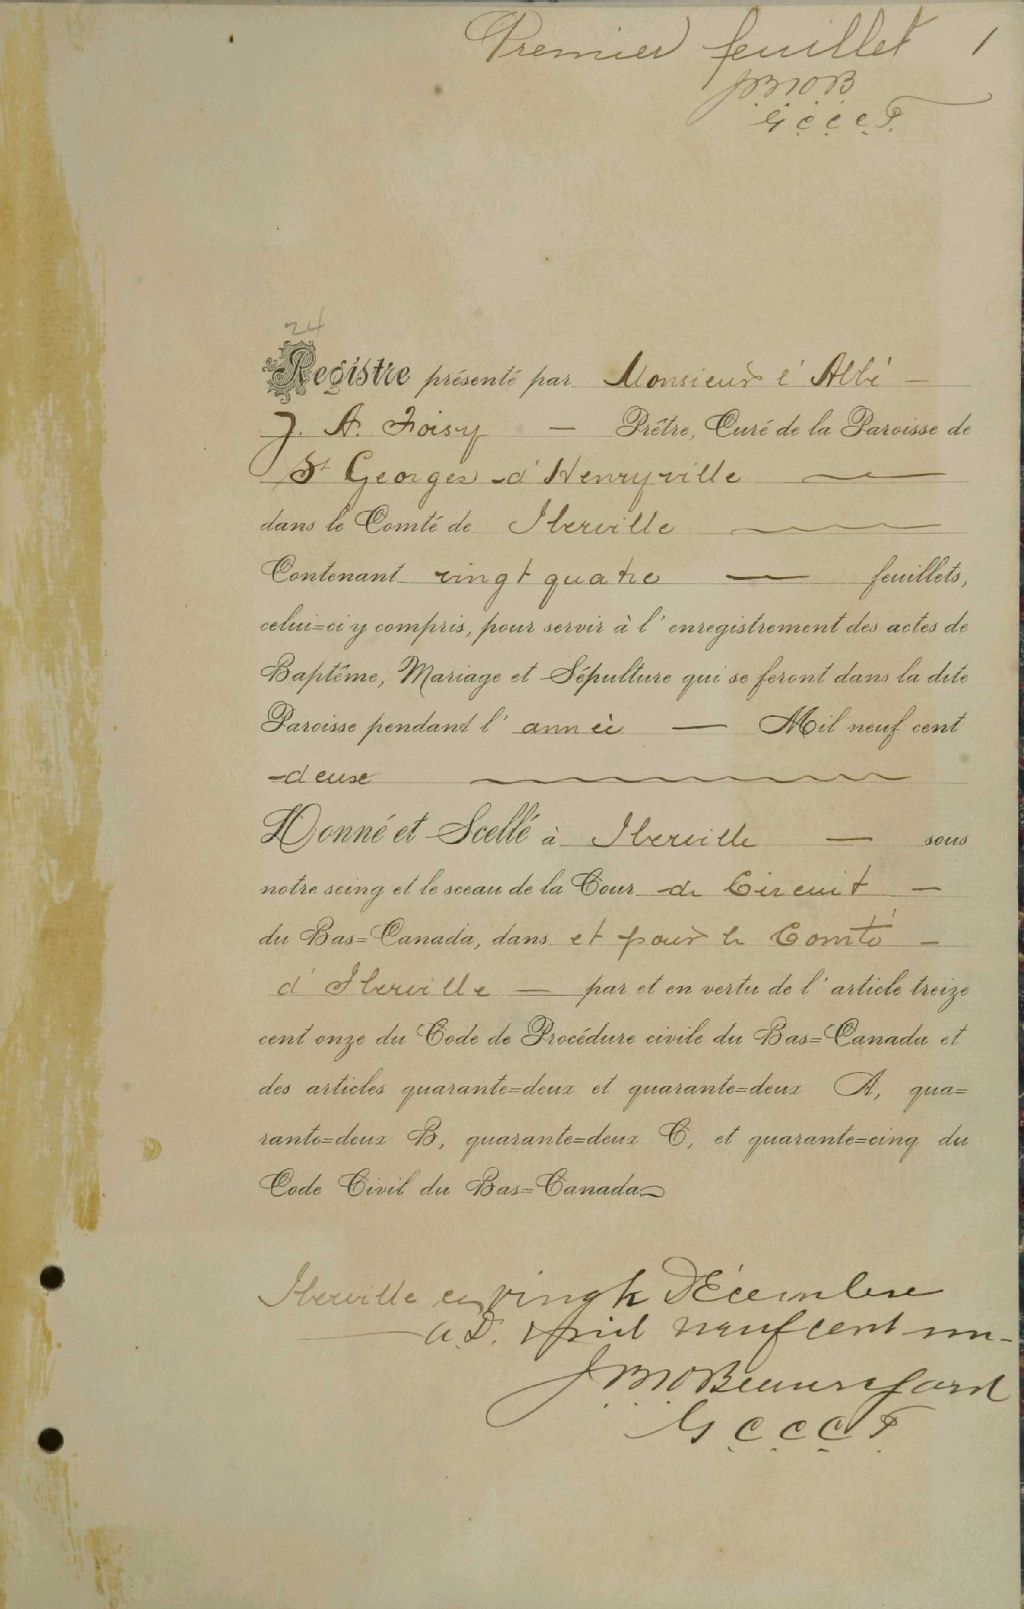 Premier feuillet 1
JBMOB
G.C.C.C.I.
24
Registre présenté par Monsieur l'Abbé —
J. A. Foisy — Prêtre, Curé de la Paroisse de
St Georges d'Henryville —
dans le Comté de Iberville —
Contenant vingt quatre — feuillets,
celui=ci y compris, pour servir à l'enregistrement des actes de
Baptême, Mariage et Sépulture qui se feront dans la dite
Paroisse pendant l'année — Mil neuf cent
deux —
Donné et Scellé à Iberville — sous
notre seing et le sceau de la Cour de Circuit —
du Bas=Canada, dans et pour le Comté —
d'Iberville — par et en vertu de l'article treize
cent onze du Code de Procédure civile du Bas=Canada et
des articles quarante=deux et quarante=deux A, qua=
rante=deux B, quarante=deux C, et quarante=cinq du
Code Civil du Bas=Canada
Iberville ce vingt Décembre
A.D. mil neuf cent un-
Beauregard
G.C.C.C.I.